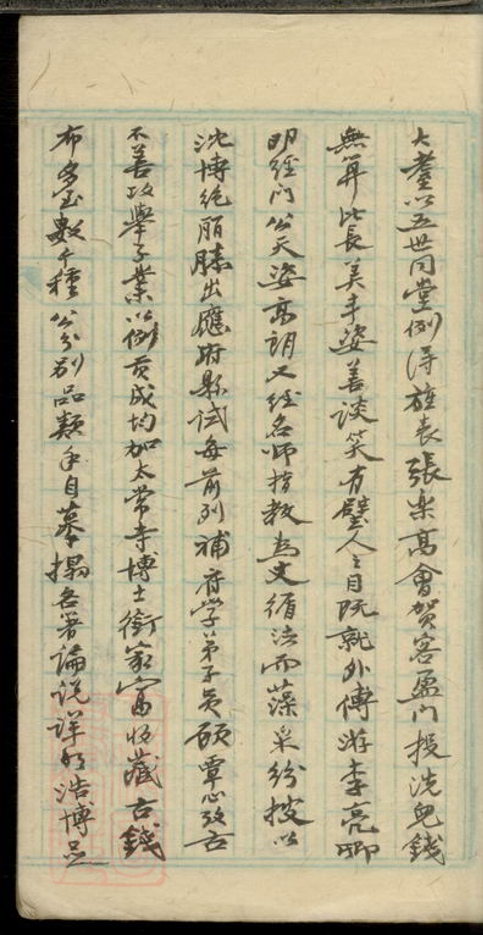 大耋以五世同堂例得旌表張樂高會賀客盈門投洗兒錢
無算比長美丰姿善談笑有璧人之目既就外傅游李亮卿
明經門公天姿高朗又經名師指教為文循法而藻采紛披以
沈博絕麗勝出應府縣試每前列補府學弟子員顧覃心攷古
不善攻舉子業以例貢成均加太常寺博士銜家富收藏古錢
布多至數千種公分別品類手自摹搨各著論說詳明浩博足